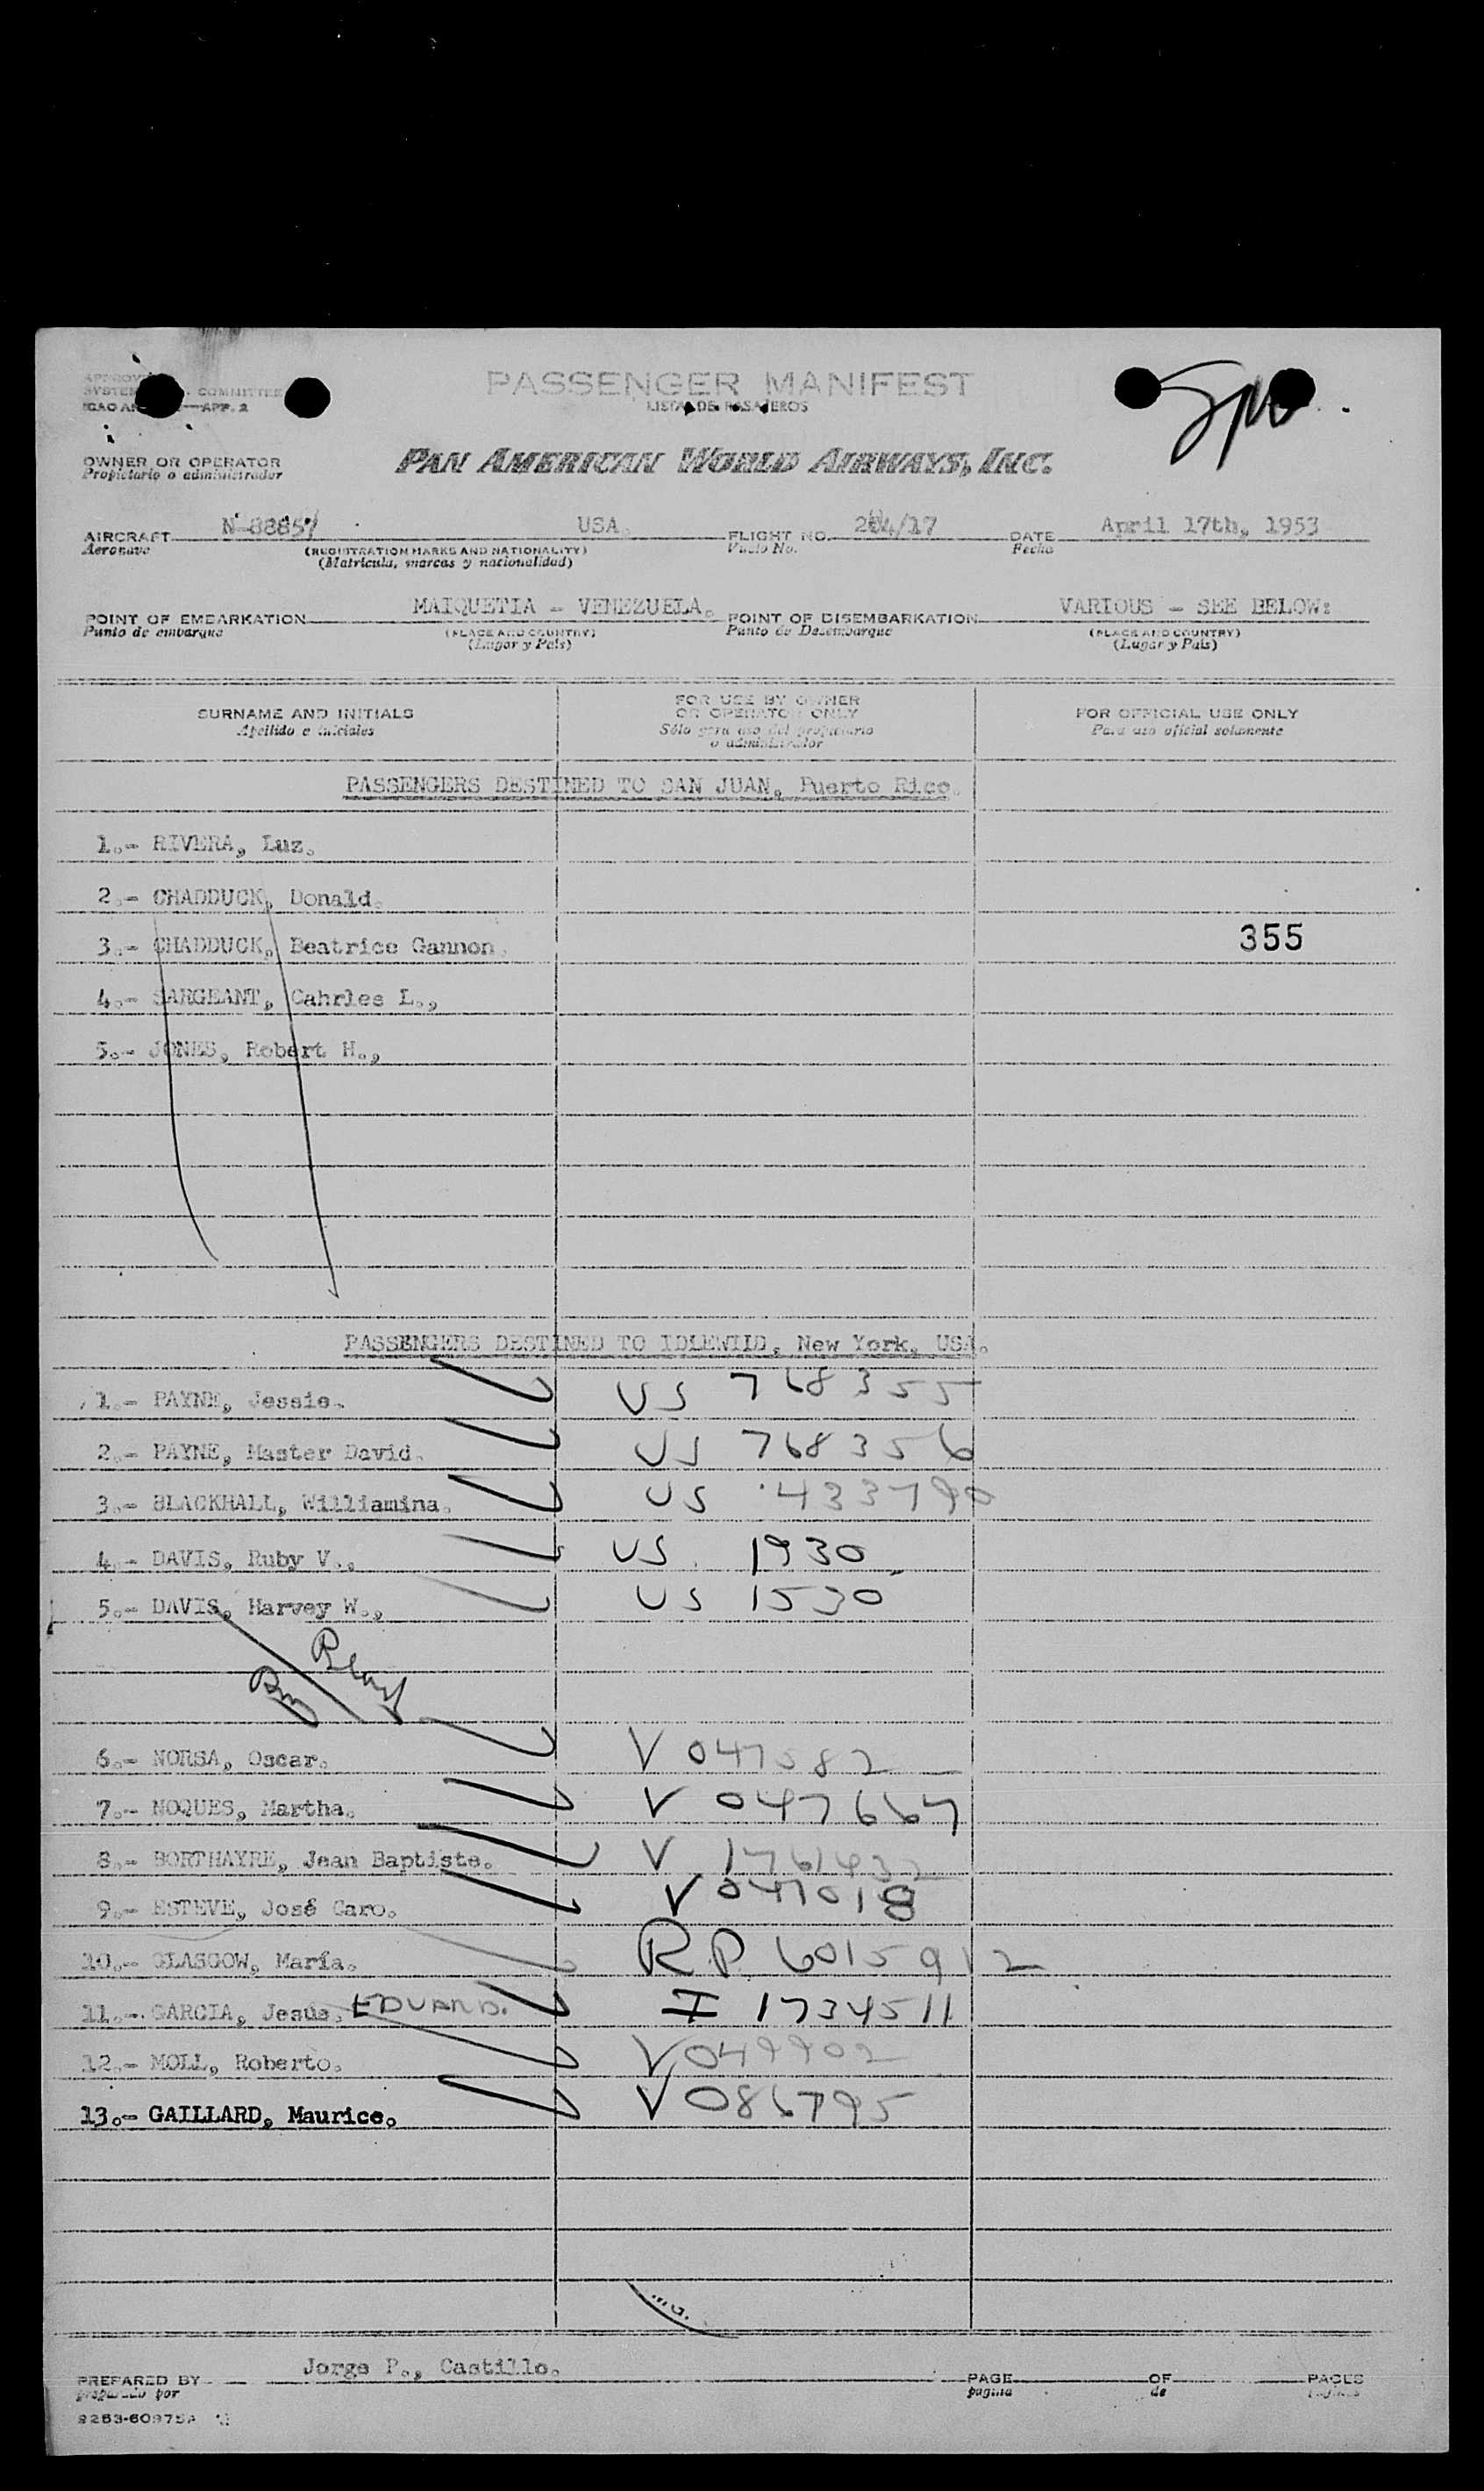 PASSENGER MANIFEST
LISTA DE PASAJEROS
COMMITTEE
APP. 2
OWNER OR OPERATOR
Propietario o administrador
PAN AMERICAN WORLD AIRWAYS, INC.
AIRCRAFT N-88857 USA. FLIGHT NO. /17 DATE April 17th, 1953
Aeronave (REGISTRATION MARKS AND NATIONALITY) Vuelo No. Fecha
(Matricula, marcas y nacionalidad)
POINT OF EMBARKATION MAIQUETIA - VENEZUELA. POINT OF DISEMBARKATION VARIOUS - SEE BELOW:
Punto de embarque (PLACE AND COUNTRY) Punto de Desembarque (PLACE AND COUNTRY)
(Lugar y País) (Lugar y País)
SURNAME AND INITIALS
Apellido e iniciales
FOR USE BY OWNER
OR OPERATOR ONLY
Sólo para uso del propietario
o administrador
FOR OFFICIAL USE ONLY
Para uso oficial solamente
PASSENGERS DESTINED TO SAN JUAN, Puerto Rico.
1.- RIVERA, Luz.
2.- CHADDUCK, Donald.
3.- CHADDUCK, Beatrice Gannon. 355
4.- SARGEANT, Cahrles L.,
5.- JONES, Robert H.,
PASSENGERS DESTINED TO IDLEWILD, New York, USA.
1.- PAYNE, Jessie. US 768355
2.- PAYNE, Master David. US 768356
3.- BLACKHALL, Williamina. US 433790
4.- DAVIS, Ruby V., US 1930
5.- DAVIS, Harvey W., US 1530
6.- NORSA, Oscar. V 047582
7.- NOQUES, Martha. V 047667
8.- BORTHAYRE, Jean Baptiste. V 1761432
9.- ESTEVE, José Caro. V 047018
10.- GLASGOW, María. RP 6015912
11.- GARCIA, Jesús. EDUARD. I 1734511
12.- MOLL, Roberto. V 049902
13.- GAILLARD, Maurice. V 086795
PREPARED BY Jorge P., Castillo. PAGE OF PAGES
preparado por pagina de